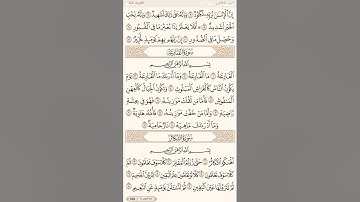 إِنَّ ٱلْإِنسَٰنَ لِرَبِّهِۦ لَكَنُودٌ ٦ وَإِنَّهُۥ عَلَىٰ ذَٰلِكَ لَشَهِيدٌ ٧ وَإِنَّهُۥ لِحُبِّ
ٱلْخَيْرِ لَشَدِيدٌ ٨ ۞ أَفَلَا يَعْلَمُ إِذَا بُعْثِرَ مَا فِي ٱلْقُبُورِ ٩
وَحُصِّلَ مَا فِي ٱلصُّدُورِ ١٠ إِنَّ رَبَّهُم بِهِمْ يَوْمَئِذٍ لَّخَبِيرٌۢ ١١
سُورَةُ القَارِعَةِ
بِسْمِ ٱللَّهِ ٱلرَّحْمَٰنِ ٱلرَّحِيمِ
ٱلْقَارِعَةُ ١ مَا ٱلْقَارِعَةُ ٢ وَمَآ أَدْرَىٰكَ مَا ٱلْقَارِعَةُ ٣ يَوْمَ
يَكُونُ ٱلنَّاسُ كَٱلْفَرَاشِ ٱلْمَبْثُوثِ ٤ وَتَكُونُ ٱلْجِبَالُ كَٱلْعِهْنِ
ٱلْمَنفُوشِ ٥ فَأَمَّا مَن ثَقُلَتْ مَوَٰزِينُهُۥ ٦ فَهُوَ فِي عِيشَةٍ
رَّاضِيَةٍ ٧ وَأَمَّا مَنْ خَفَّتْ مَوَٰزِينُهُۥ ٨ فَأُمُّهُۥ هَاوِيَةٌ ٩
وَمَآ أَدْرَىٰكَ مَا هِيَهْ ١٠ نَارٌ حَامِيَةٌۢ ١١
سُورَةُ التَّكَاثُرِ
بِسْمِ ٱللَّهِ ٱلرَّحْمَٰنِ ٱلرَّحِيمِ
أَلْهَىٰكُمُ ٱلتَّكَاثُرُ ١ حَتَّىٰ زُرْتُمُ ٱلْمَقَابِرَ ٢ كَلَّا سَوْفَ تَعْلَمُونَ ٣
ثُمَّ كَلَّا سَوْفَ تَعْلَمُونَ ٤ كَلَّا لَوْ تَعْلَمُونَ عِلْمَ ٱلْيَقِينِ ٥ لَتَرَوُنَّ ٱلْجَحِيمَ ٦
ثُمَّ لَتَرَوُنَّهَا عَيْنَ ٱلْيَقِينِ ٧ ثُمَّ لَتُسْـَٔلُنَّ يَوْمَئِذٍ عَنِ ٱلنَّعِيمِ ٨